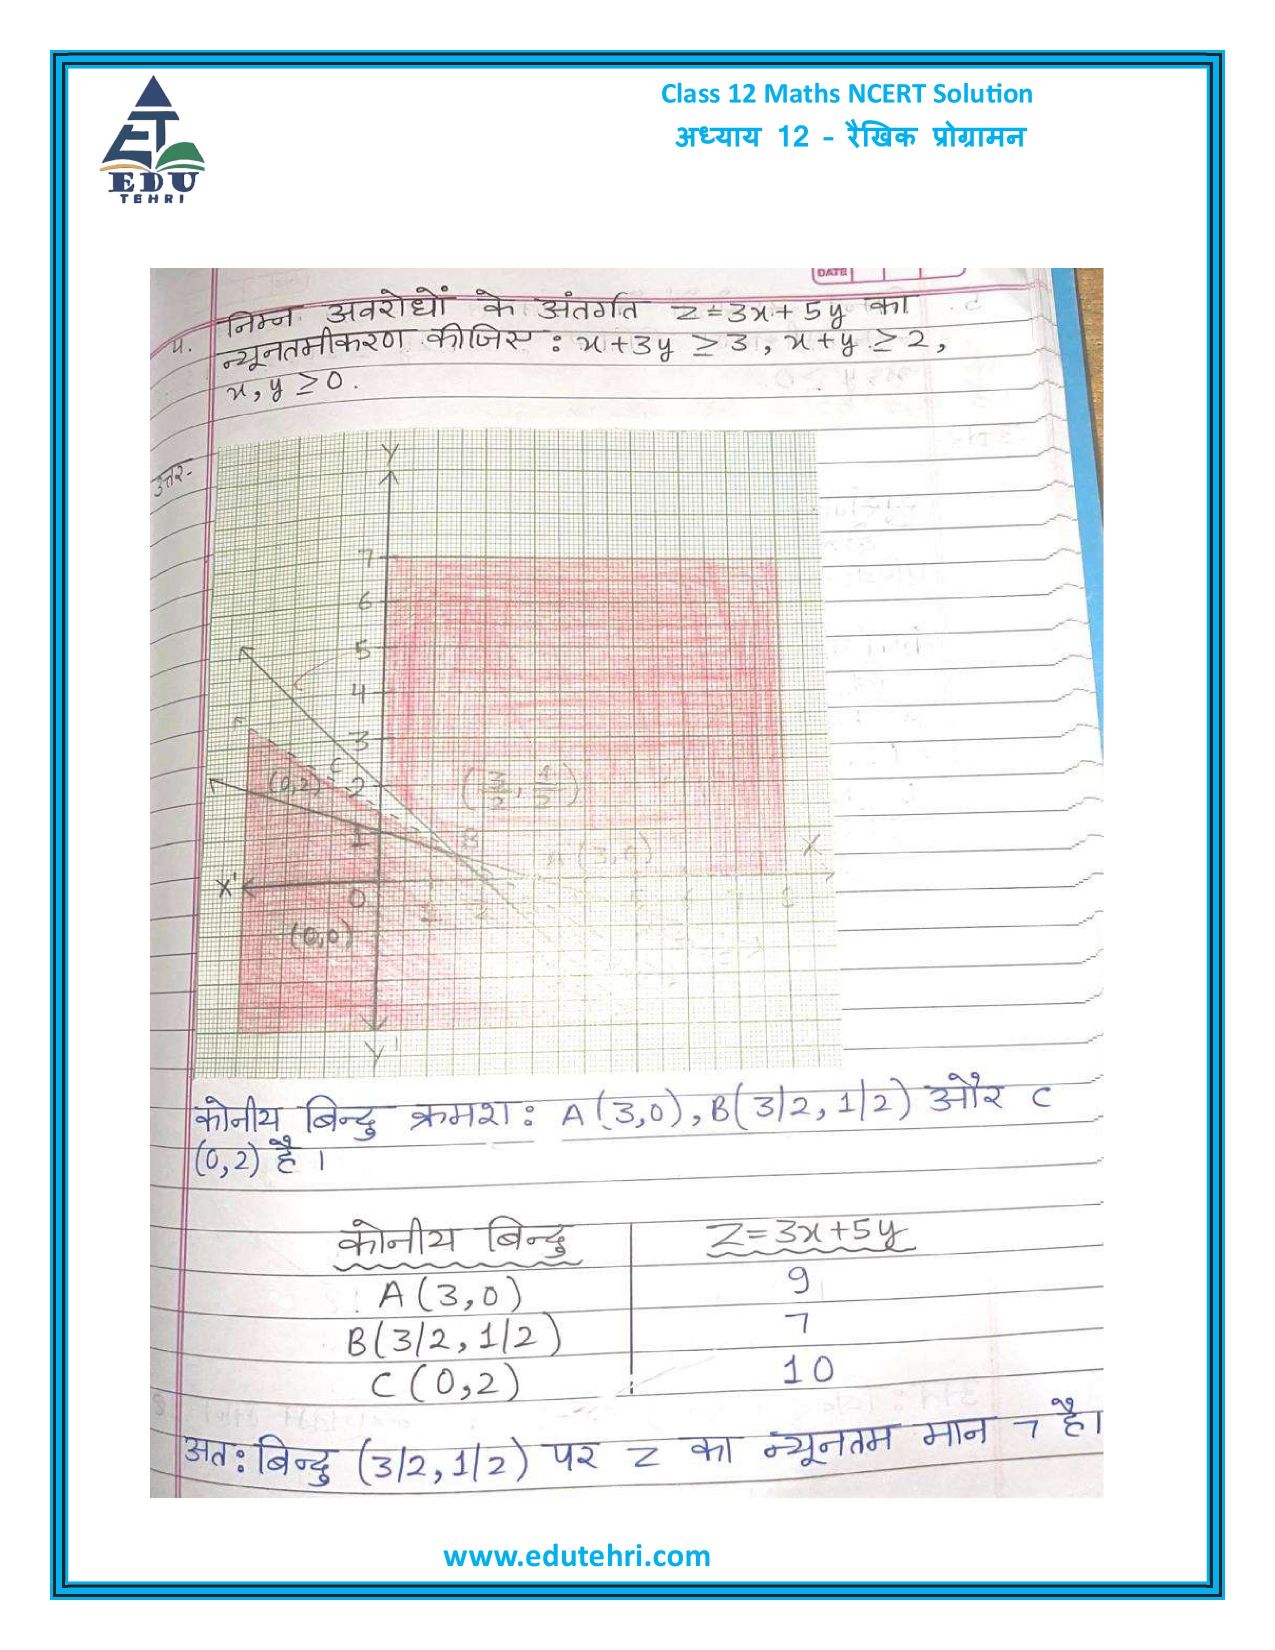 Class 12 Maths NCERT Solution
अध्याय 12 - रैखिक प्रोग्रामन
EDU
TEHRI
DATE
निम्न अवरोधों के अंतर्गत z = 3x + 5y का
4. न्यूनतमीकरण कीजिए : x + 3y ≥ 3, x + y ≥ 2,
x, y ≥ 0.
उत्तर-
Y
7
6
5
4
3
C
(0,2) 2
(3/2, 1/2)
1 B
A (3,0) X
X'
0 1 2 5 8
(0,0)
Y'
कोनीय बिन्दु क्रमश: A(3,0), B(3/2, 1/2) और C
(0,2) है ।
कोनीय बिन्दु Z=3x+5y
A (3,0) 9
B(3/2, 1/2) 7
C (0,2) 10
अत: बिन्दु (3/2, 1/2) पर Z का न्यूनतम मान 7 है।
www.edutehri.com